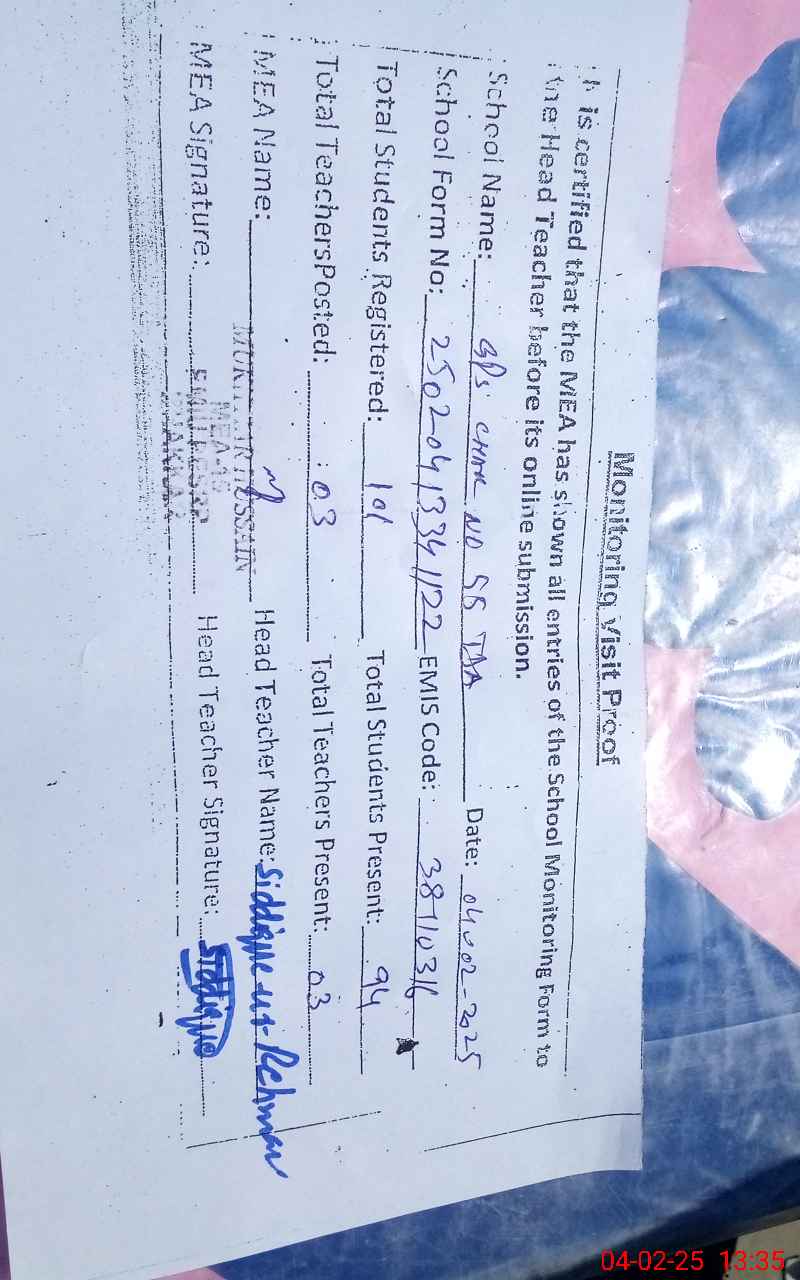 Monitoring Visit Proof
It is certified that the MEA has shown all entries of the School Monitoring Form to
the Head Teacher before its online submission.
School Name: GPS CHAK NO 55 TDA Date: 04-02-2025
School Form No: 25020413341122 EMIS Code: 38710316
Total Students Registered: 101 Total Students Present: 94
Total TeachersPosted: 03 Total Teachers Present: 03
MEA Name: HUSSAIN Head Teacher Name: Siddique-ur-Rehman
MEA Signature: MEA- Head Teacher Signature: Siddique
04-02-25 13:35